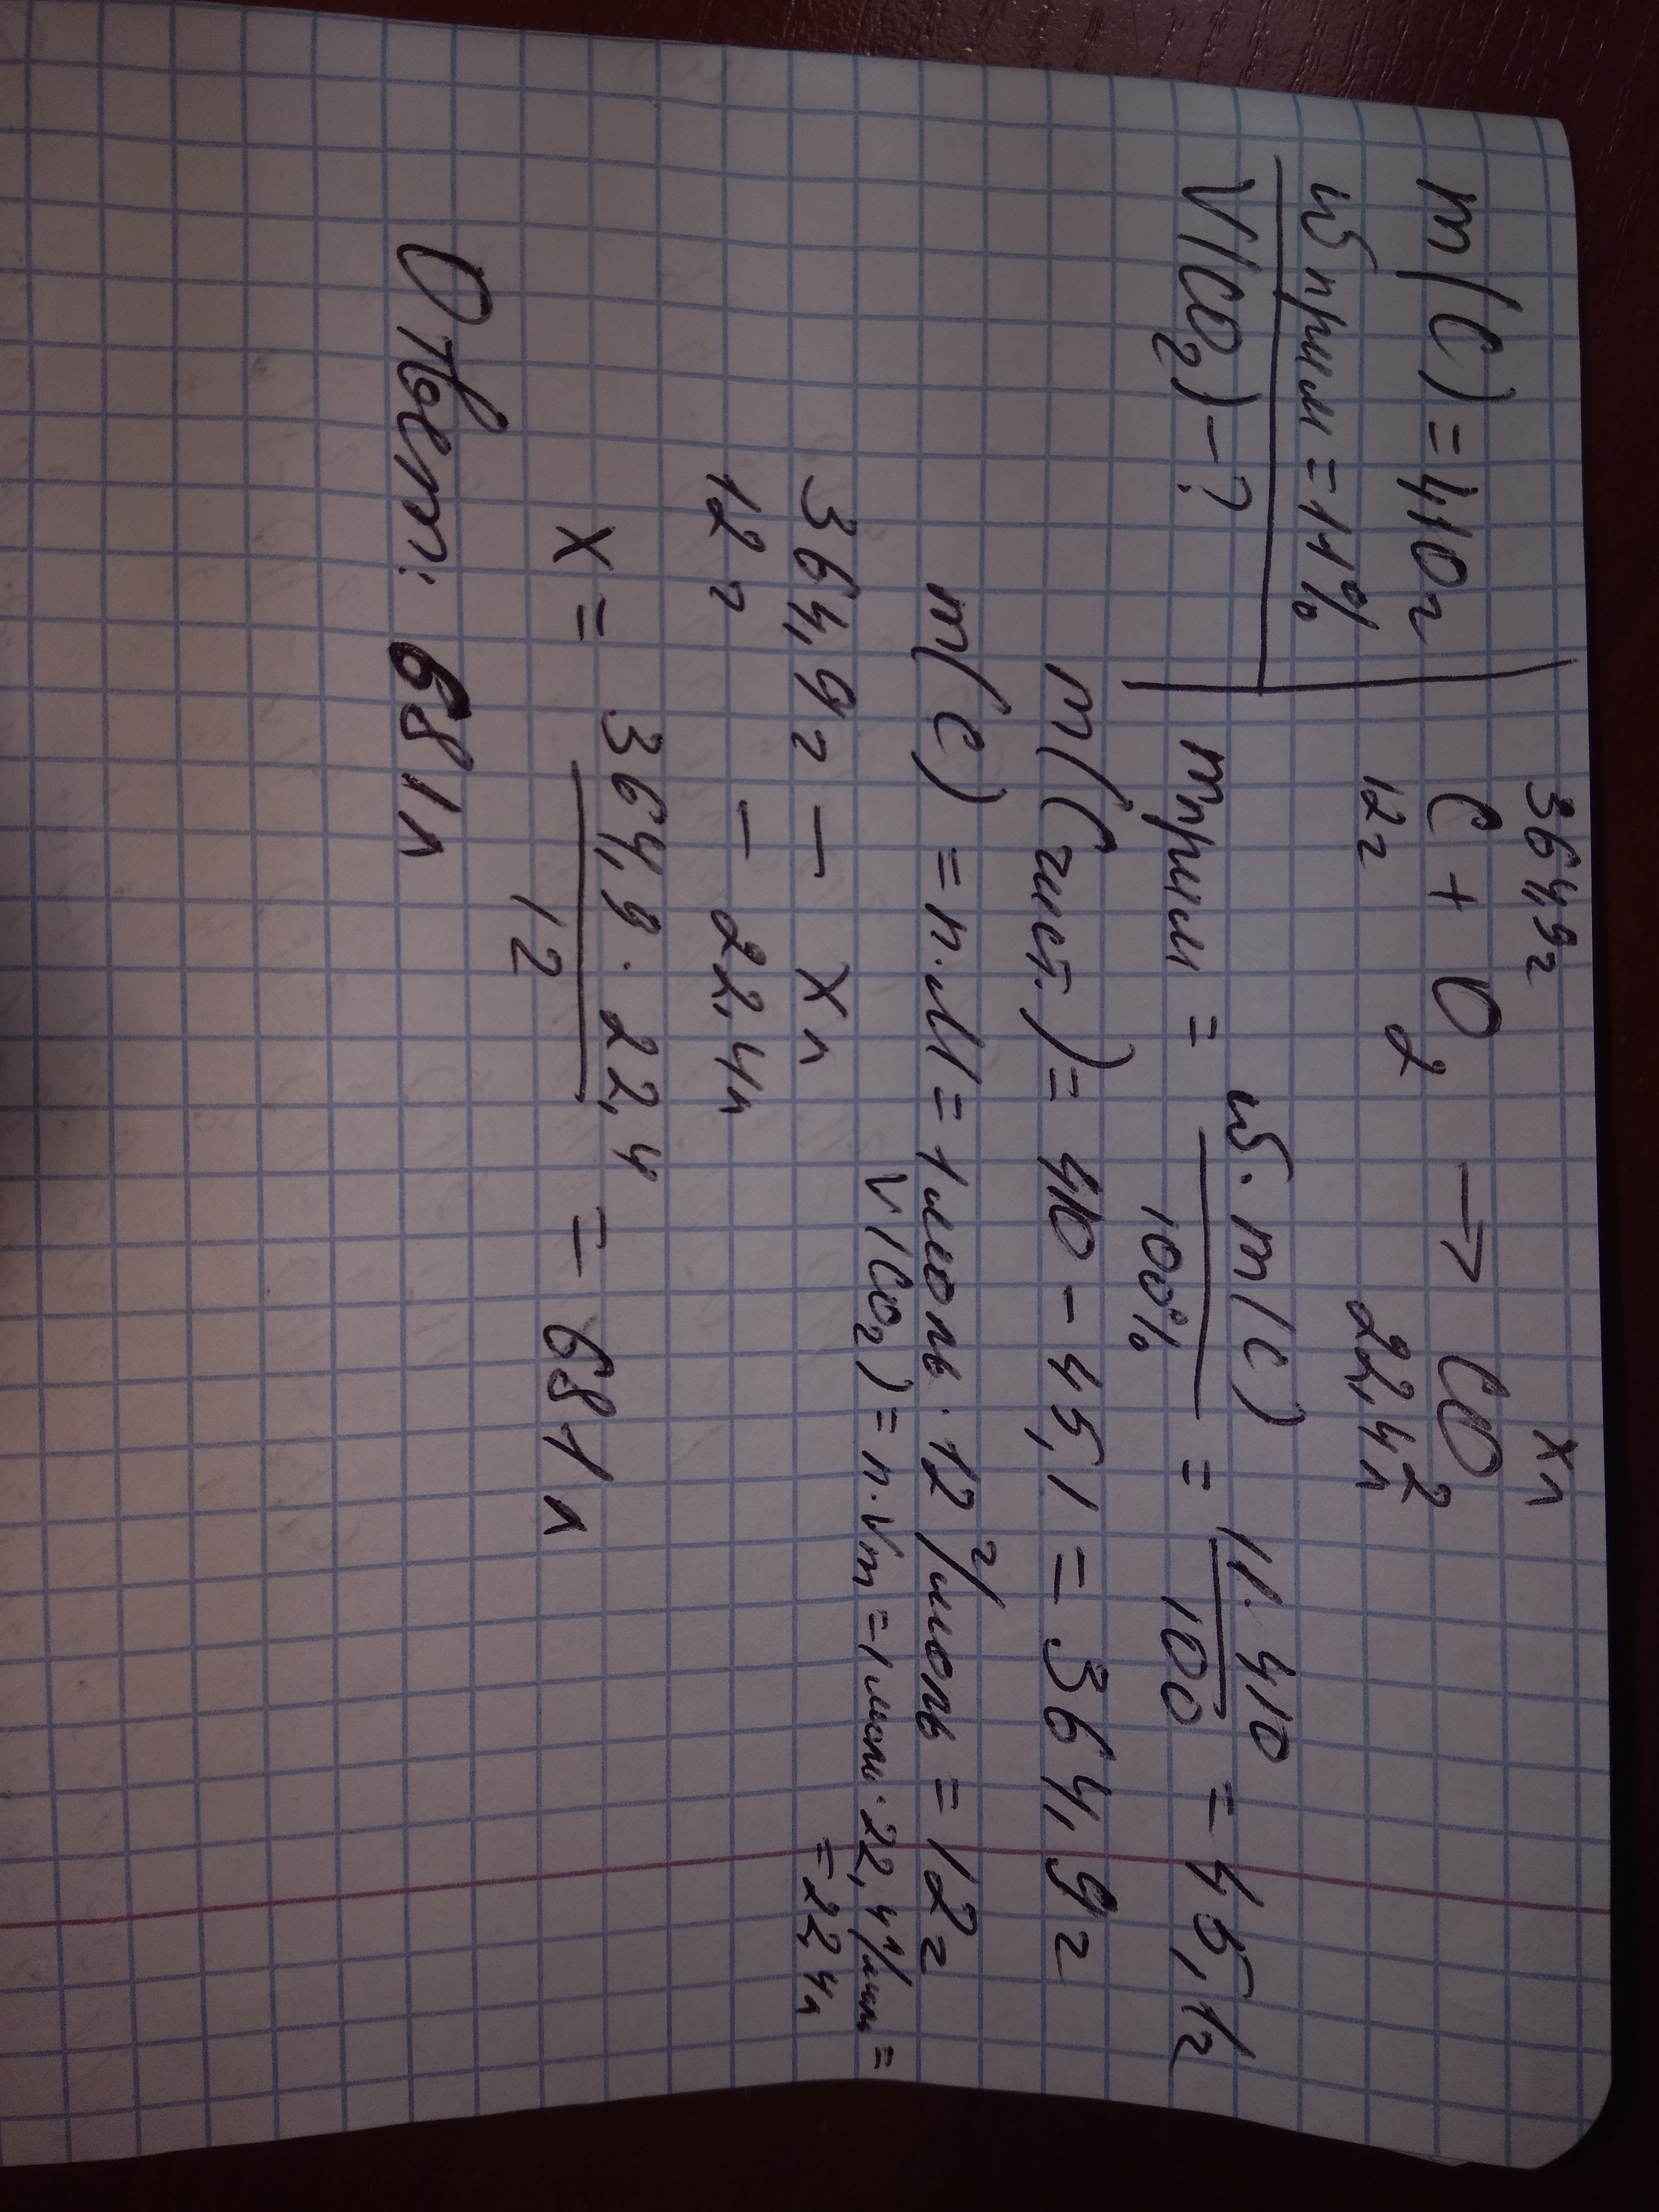 m(C) = 410г
364,9г xл
C + O₂ → CO₂
12г 22,4л
ω прим = 11%
V(CO₂) - ?
mприм = ω·m(C) / 100% = 11·410 / 100 = 45,1г
m(Cчист.) = 410 - 45,1 = 364,9г
m(C) = n·M = 1моль·12 г/моль = 12г
V(CO₂) = n·Vm = 1моль·22,4л/моль =
= 22,4л
364,9г — xл
12г — 22,4л
x = 364,9·22,4 / 12 = 681л
Ответ: 681л